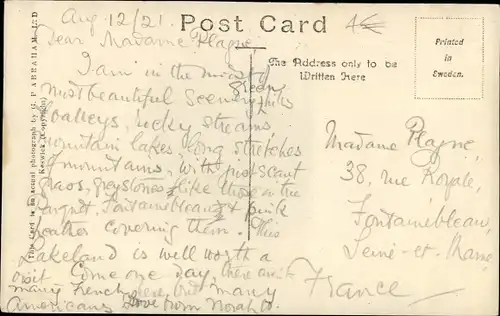 Aug 12/21.
Post Card
Dear Madame Plagne
I am in the midst of
most beautiful scenery, green hills
valleys, rocky streams,
mountain lakes, long stretches
of mountains, with just scant
grass, greystones like those in the
Fontainebleau & pink
heather covering them. This
Lakeland is well worth a
visit. Come one day, there aren't
many French here but many
Americans. Love from Norah
The Address only to be
Written Here
Printed
in
Sweden.
Madame Plagne,
38, rue Royale,
Fontainebleau,
Seine-et-Marne,
France
This Card is an actual photograph by G. P. ABRAHAM, LTD
Keswick (Copyright)